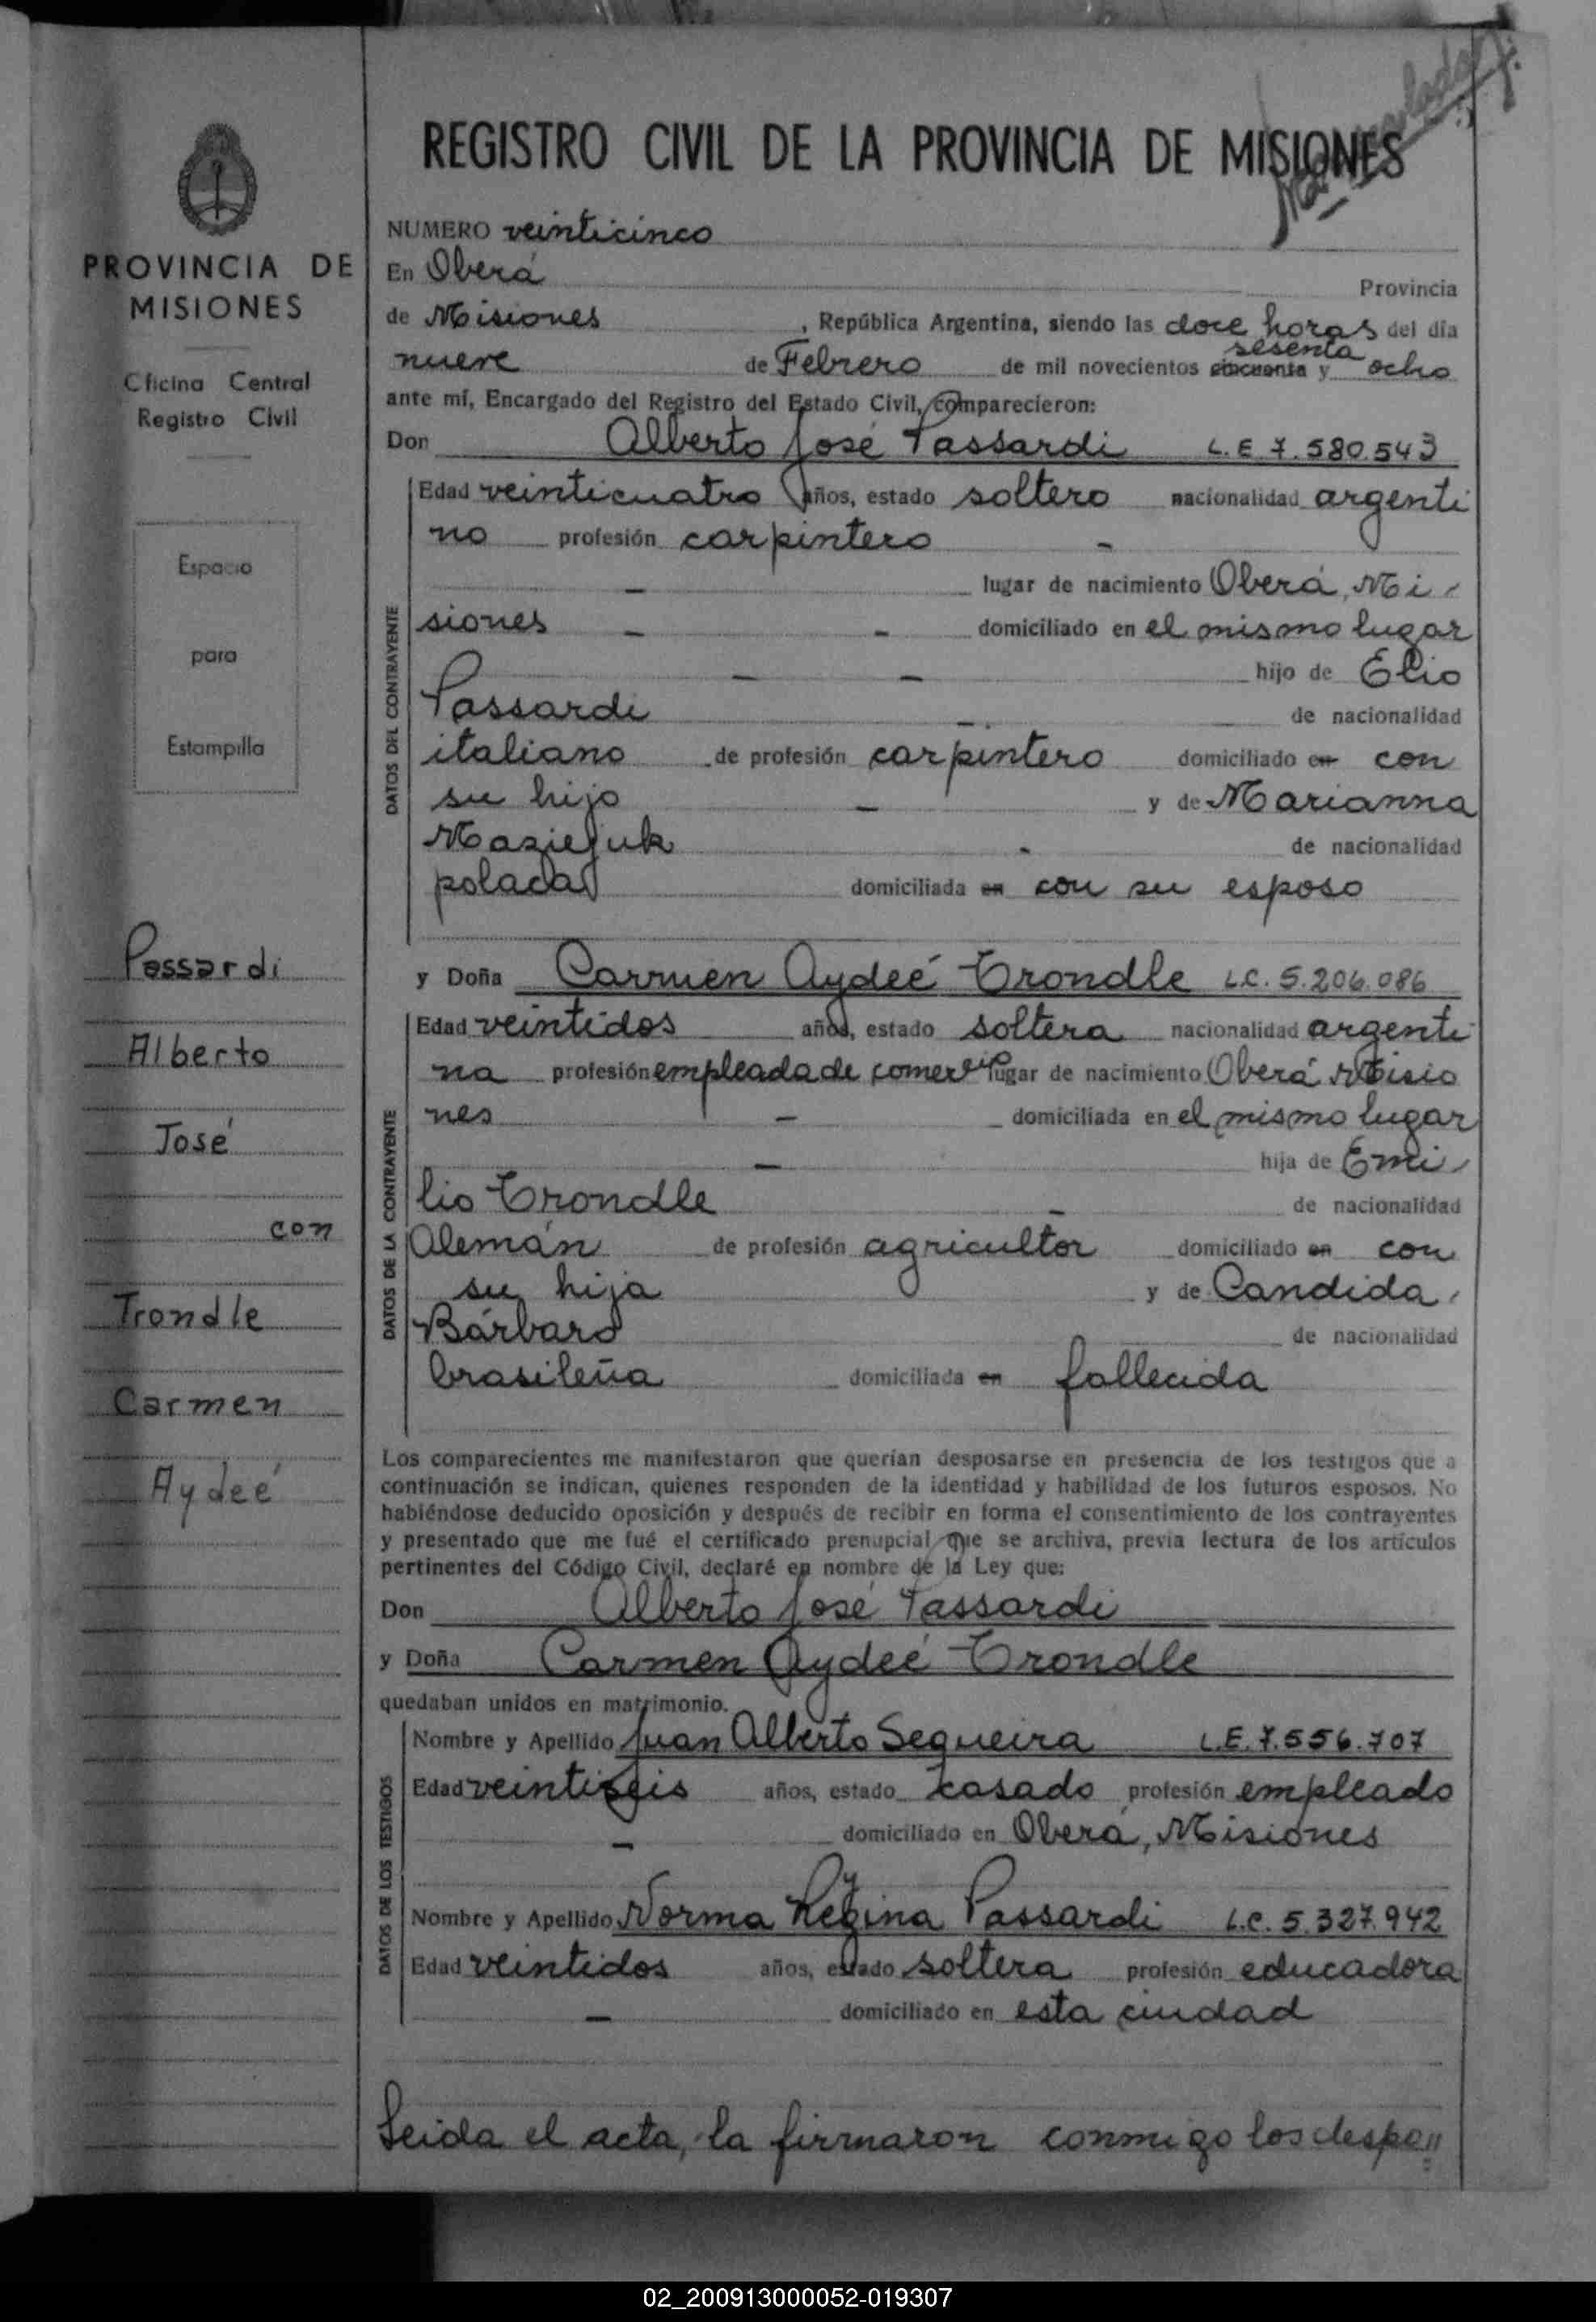 REGISTRO CIVIL DE LA PROVINCIA DE MISIONES
PROVINCIA DE
MISIONES
Oficina Central
Registro Civil
Espacio
para
Estampilla
Passardi
Alberto
José
con
Trondle
Carmen
Aydeé
NUMERO veinticinco
En Oberá Provincia
de Misiones, República Argentina, siendo las doce horas del día
sesenta
nueve de Febrero de mil novecientos cincuenta y ocho
ante mí, Encargado del Registro del Estado Civil, comparecieron:
Don Alberto José Passardi L.E 7.580.543
DATOS DEL CONTRAYENTE
Edad veinticuatro años, estado soltero nacionalidad argenti
no profesión carpintero -
- lugar de nacimiento Oberá, Mi-
siones - - domiciliado en el mismo lugar
- - hijo de Elio
Passardi - de nacionalidad
italiano de profesión carpintero domiciliado en con
su hijo - y de Marianna
Maziejuk - de nacionalidad
polaca domiciliada en con su esposo
y Doña Carmen Aydeé Trondle L.C. 5.206.086
DATOS DE LA CONTRAYENTE
Edad veintidos años, estado soltera nacionalidad argenti
na profesión empleada de comercio lugar de nacimiento Oberá Misio
nes - domiciliada en el mismo lugar
- hija de Emi-
lio Trondle - de nacionalidad
Alemán de profesión agricultor domiciliado en con
su hija y de Candida
Bárbaro de nacionalidad
brasileña domiciliada en fallecida
Los comparecientes me manifestaron que querían desposarse en presencia de los testigos que a
continuación se indican, quienes responden de la identidad y habilidad de los futuros esposos. No
habiéndose deducido oposición y después de recibir en forma el consentimiento de los contrayentes
y presentado que me fué el certificado prenupcial que se archiva, previa lectura de los artículos
pertinentes del Código Civil, declaré en nombre de la Ley que:
Don Alberto José Passardi
y Doña Carmen Aydeé Trondle
quedaban unidos en matrimonio.
DATOS DE LOS TESTIGOS
Nombre y Apellido Juan Alberto Sequeira L.E. 7.556.707
Edad veintiseis años, estado casado profesión empleado
- domiciliado en Oberá, Misiones
Nombre y Apellido Norma Regina Passardi L.C. 5.327.942
Edad veintidos años, estado soltera profesión educadora
- domiciliado en esta ciudad
Leida el acta, la firmaron conmigo los despo"
02_200913000052-019307